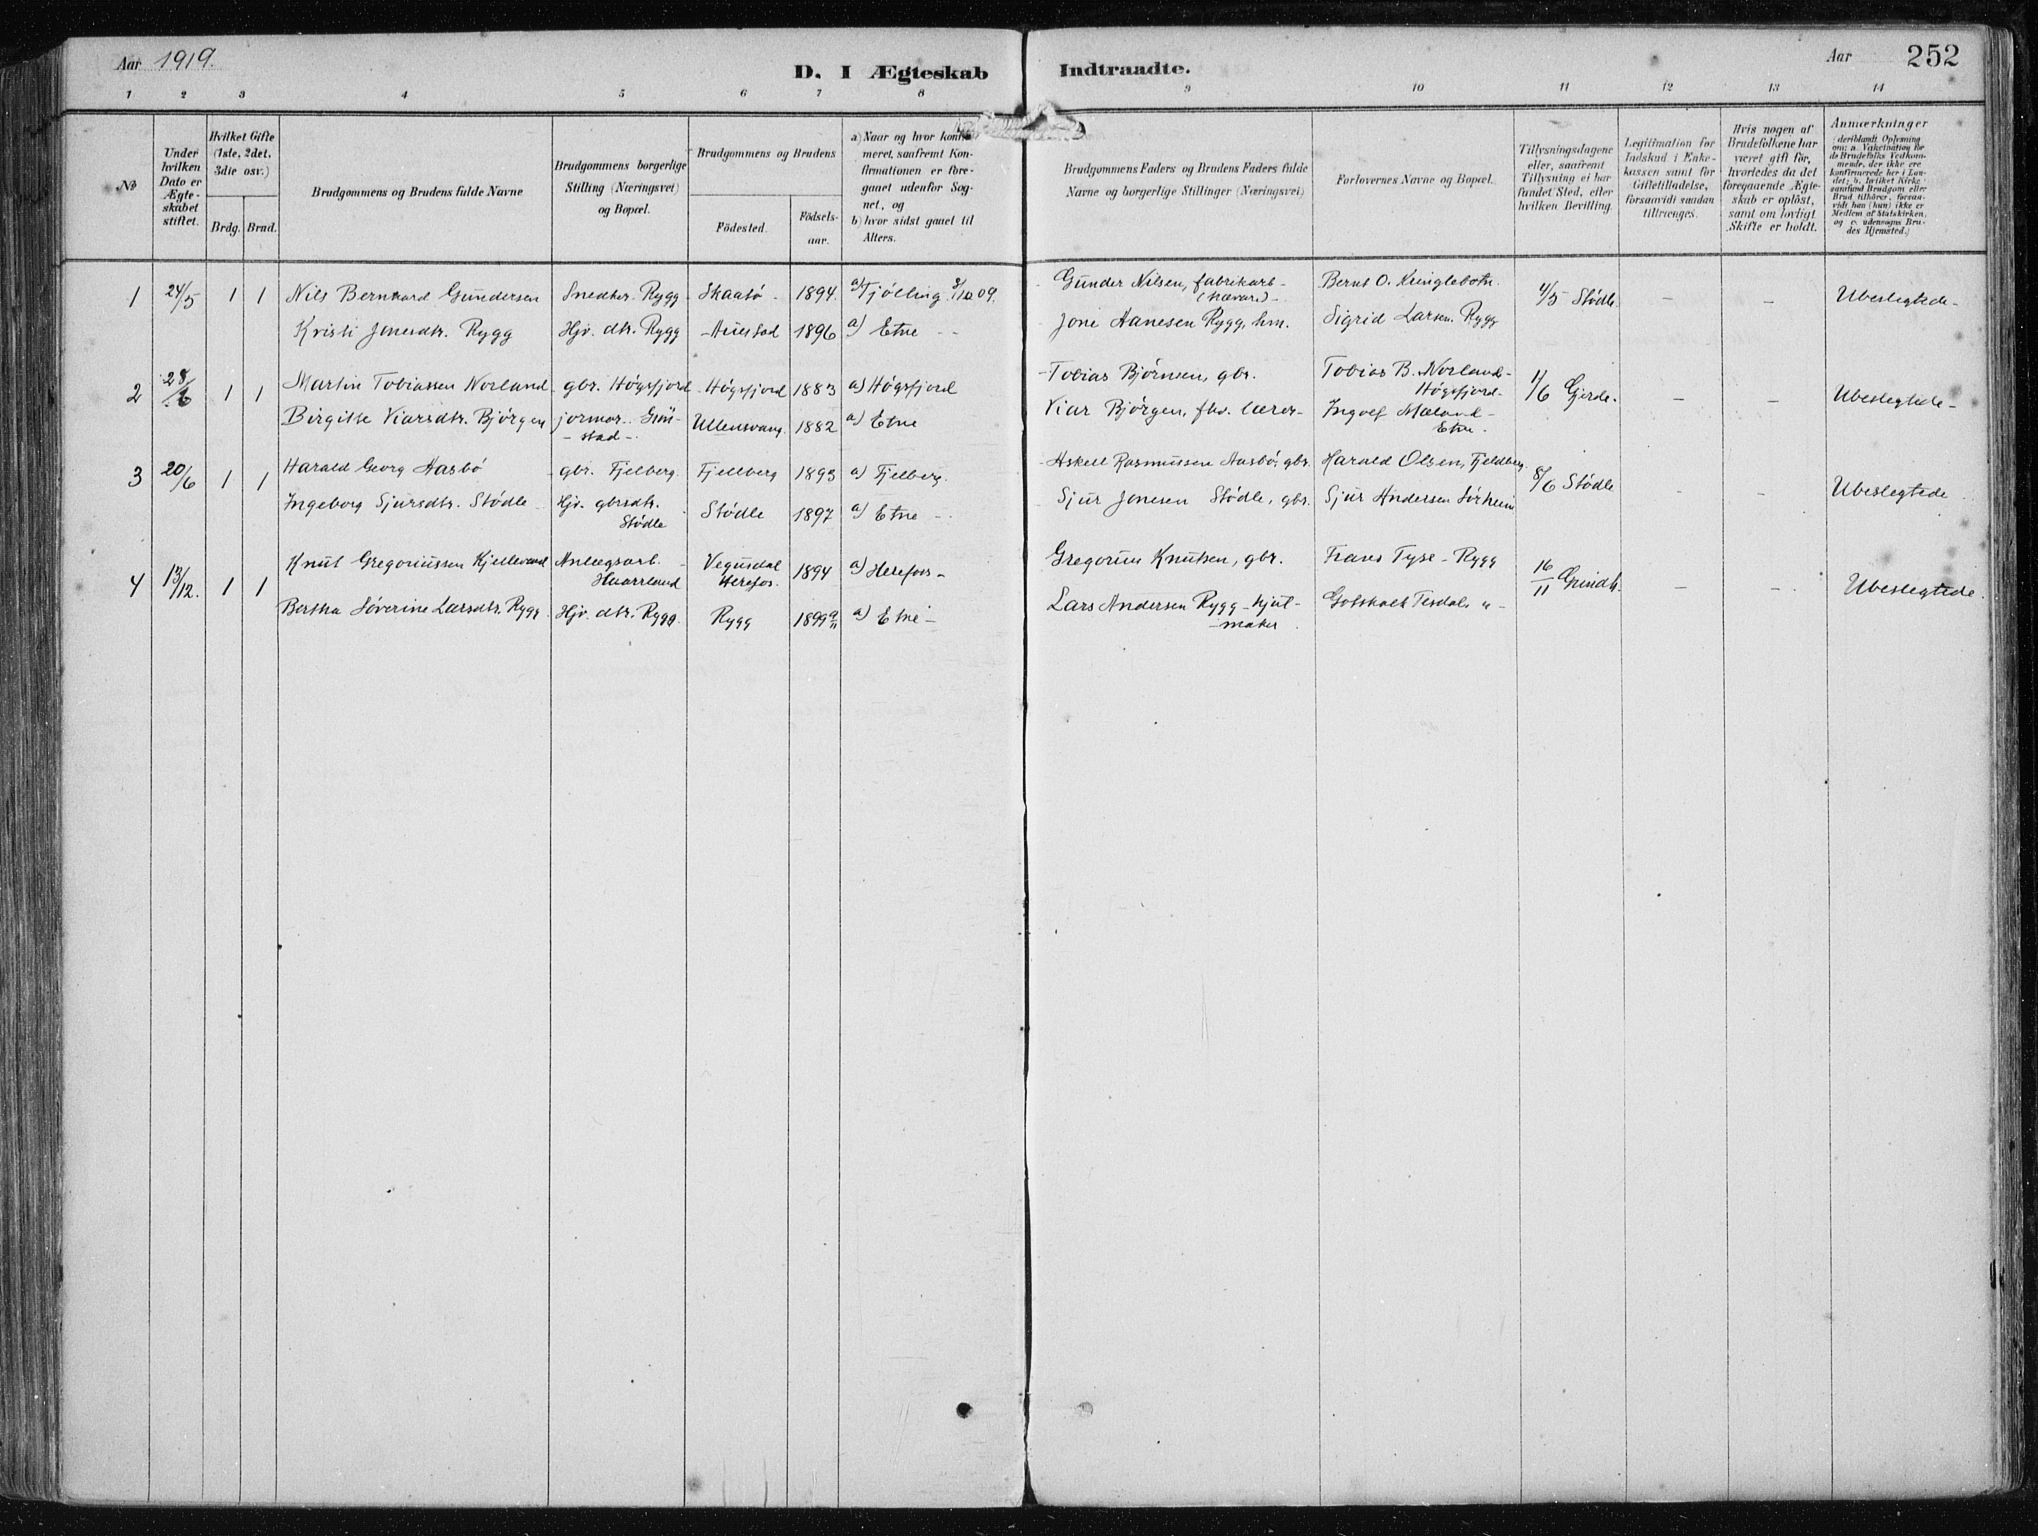 Aar 1919.
D. I Ægteskab
Indtraadte.
Aar
252
1 2 3 4 5 6 7 8 9 10 11 12 13 14
No
Under hvilken Dato er Ægteskabet stiftet.
Hvilket Gifte (1ste, 2det, 3die osv.)
Brdg. Brud.
Brudgommens og Brudens fulde Navne
Brudgommens borgerlige Stilling (Næringsvei) og Bopæl.
Brudgommens og Brudens
Födested.
Födsels-aar.
a) Naar og hvor konfirmeret, saafremt Konfirmationen er foregaaet udenfor Sognet, og
b) hvor sidst gaaet til Alters.
Brudgommens Faders og Brudens Faders fulde Navne og borgerlige Stillinger (Næringsvei)
Forlovernes Navne og Bopæl.
Tillysningsdagene eller, saafremt Tillysning ei har fundet Sted, efter hvilken Bevilling.
Legitimation for Indskud i Enkekassen samt for Giftetilladelse, forsaavidt saadan tiltrænges.
Hvis nogen af Brudefolkene har været gift för, hvorledes da det foregaaende Ægteskab er oplöst, samt om lovligt Skifte er holdt.
Anmærkninger
1 24/5 1 1 Nils Bernhard Gundersen Snedker. Rygg Skaatö - 1894. a) Tjölling 3/10 09. Gunder Nilsen, fabrikarb- Bernt O. 4/5 Stödle. - - Ubeslegtede-
Kristi Jonesdtr. Rygg Hjv. dtr. Rygg 1896 a) Etne - - Jone Hanesen Rygg, hm. Sigrid Larsen. Rygg
2 28/6 1 1 Martin Tobiassen Norland gbr. Högsfjord Högsfjord 1883 a) Högsfjord Tobias Björnsen, gbr. Tobias B. Norland- Högsfjord- 1/6 Gjerde. - - Ubeslegtede-
Birgitte Viarsdtr. Björgen jormor. Grin-stad-. Ullensvang. 1882 a) Etne Viar Björgen, fhv. lærer- Ingolf Mæland- Etne-.
3 20/6 1 1 Harald Georg Aasbö gbr. Fjelberg. Fjellberg 1893 a) Fjelberg. Askell Rasmussen Aasbö, gbr. Harald Olsen, Fjeldberg. 8/6 Stödle - - Ubeslegtede
Ingeborg Sjursdtr. Stödle Hjv. gbrsdtr. Stödle Stödle 1897 a) Etne - Sjur Jonesen Stödle, gbr. Sjur Andersen Sörheim
4 13/12. 1 1 Knut Gregoriussen Kjellevand Anlægsarb. Haarrland Vegusdal Herefos. 1894 a) Herefos- Gregorius Knutsen, gbr. Frans Tyse - Rygg 16/11 Grindh. - - Ubeslegtede.
Bertha Söverine Larsdtr. Rygg. Hjv. dtr. Rygg. Rygg 1899 9/11 a) Etne- Lars Andersen Rygg - hjul-maker. Gotskalk Tesdal. "-